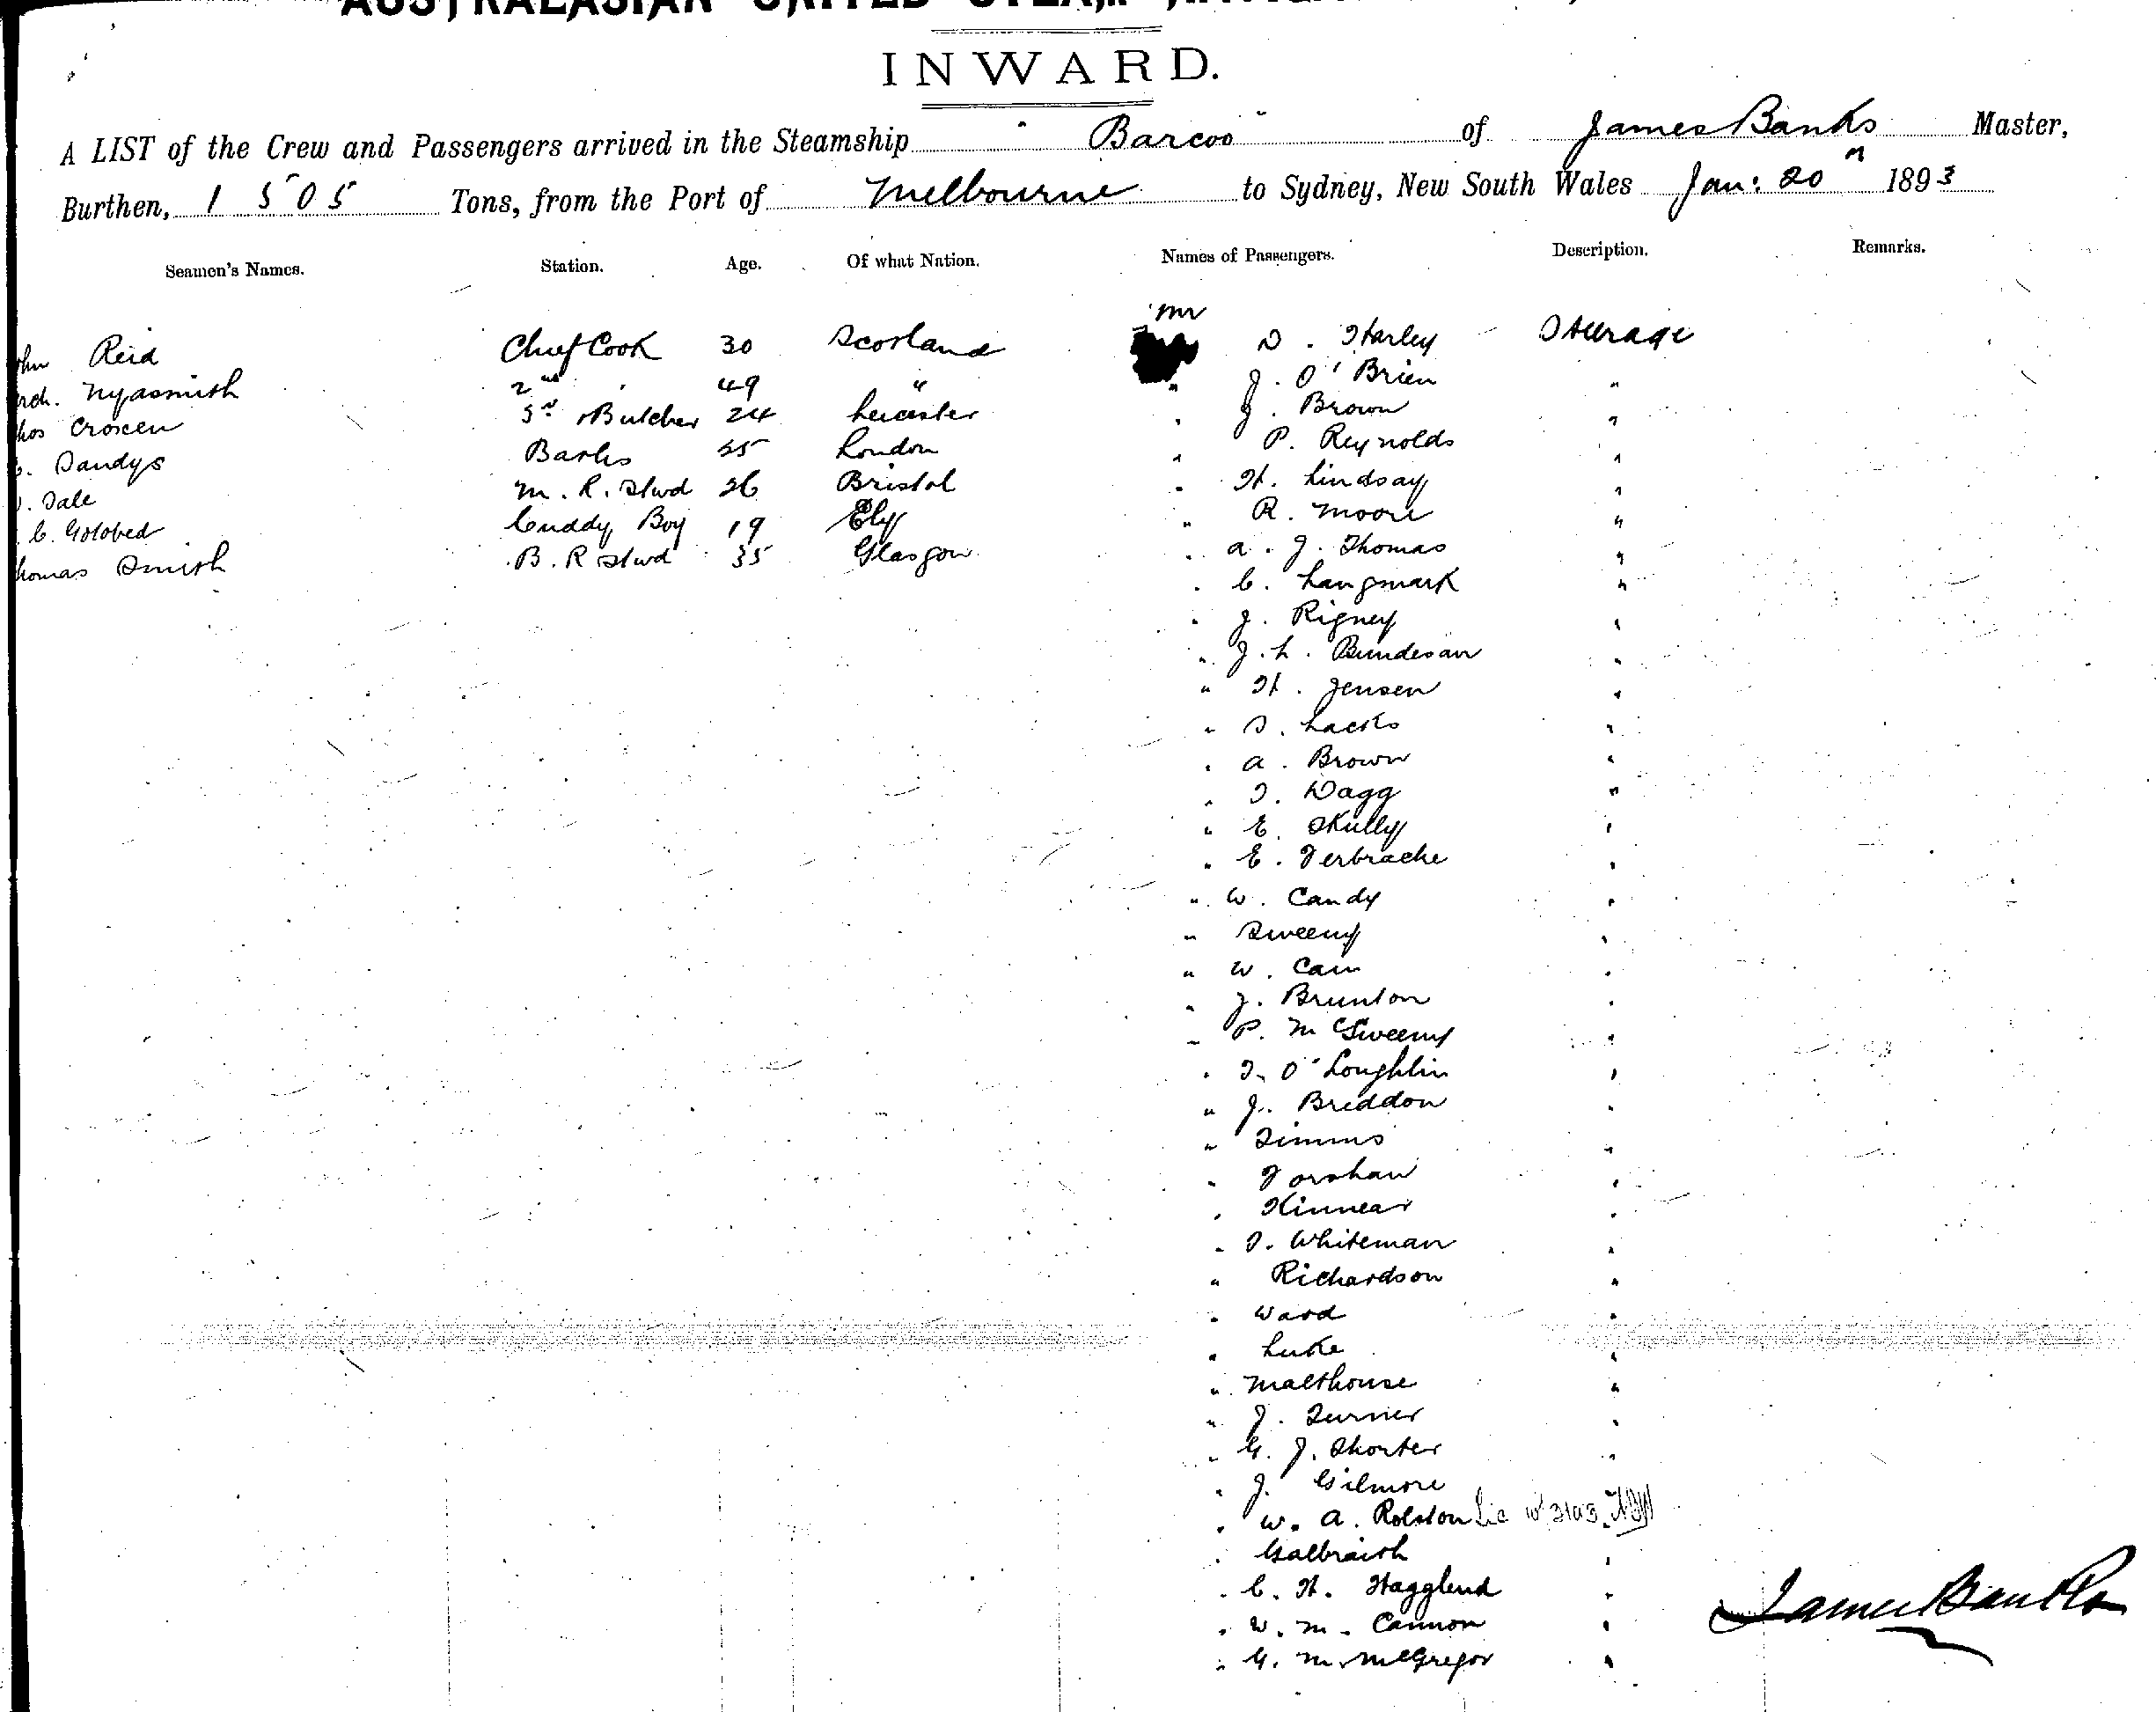 AUSTRALASIAN UNITED STEAM
INWARD.
A LIST of the Crew and Passengers arrived in the Steamship "Barcoo" of James Banks Master,
Burthen, 1505 Tons, from the Port of Melbourne to Sydney, New South Wales Jan: 20th 1893
Seamen's Names. Station. Age. Of what Nation. Names of Passengers. Description. Remarks.
Mr
Reid Chief Cook 30 Scotland D. Harley Steerage
Nyasmith 2nd " 49 " " J. O'Brien "
Croxen 3rd & Butcher 24 Leicester " J. Brown "
Dandys Barks 25 London " P. Reynolds "
Dale M. R. Stwd 26 Bristol " H. Lindsay "
C. Golobed Cuddy Boy 19 Ely " R. Moore "
homas Smith B. R Stwd 35 Glasgow " A. J. Thomas "
" C. Langmark "
" J. Rigney "
" J. L. Bundesan "
" H. Jensen "
" S. Lacks "
" A. Brown "
" T. Wagg "
" E. Skully "
" E. Terbracke "
" W. Candy "
" Sweeny "
" W. Cain "
" J. Brunton "
" P. McSweeny "
" T. O'Loughlin "
" J. Breddon "
" Timms "
" Forshaw "
" Kinnear "
" T. Whiteman "
" Richardson "
" Ward "
" Luke "
" Malthouse "
" J. Turner "
" G. J. Shorter "
" J. Gilmore
" W. A. Rolston Lic
" Galbraith "
" C. H. Hagglund "
" W. M. Cannon "
" G. M. McGregor "
James Banks